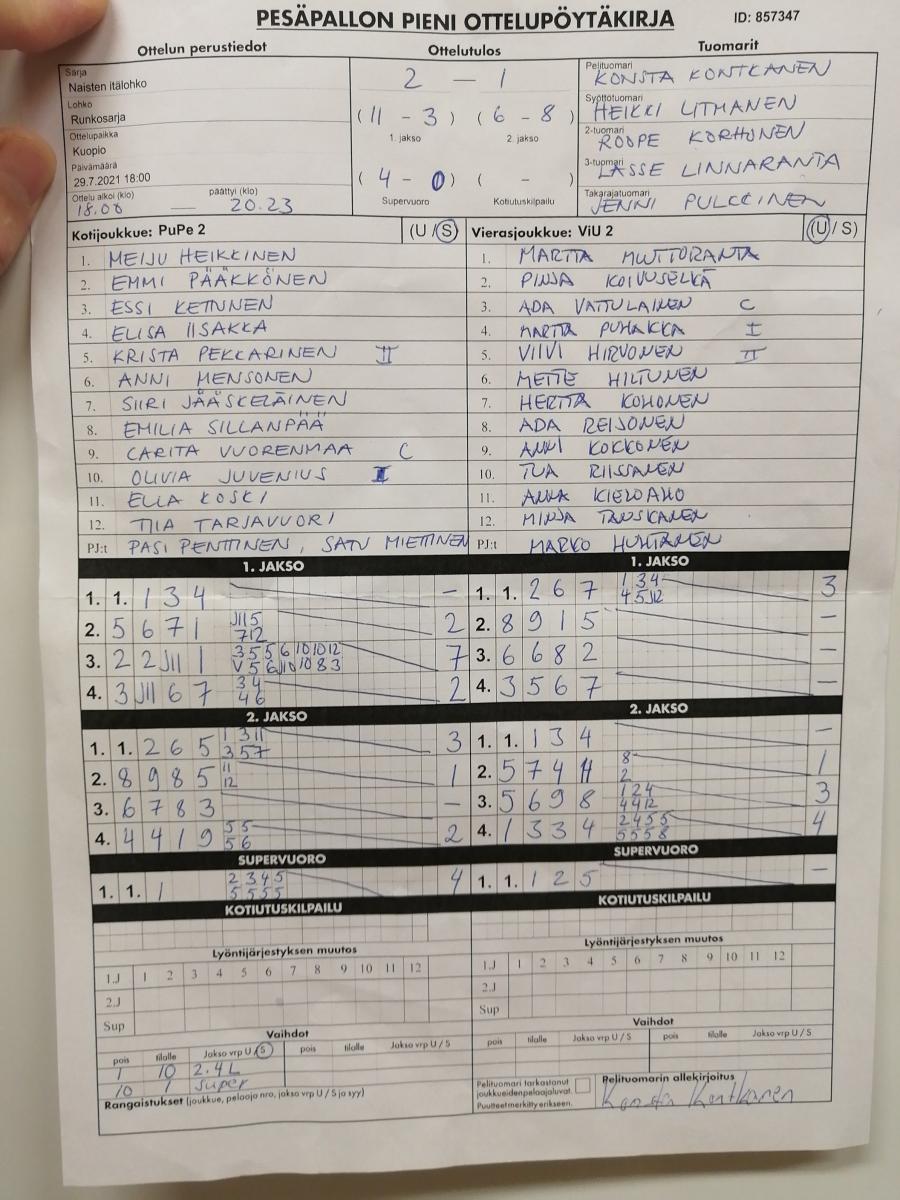 PESÄPALLON PIENI OTTELUPÖYTÄKIRJA ID: 857347
Ottelun perustiedot Ottelutulos Tuomarit
Sarja
Naisten itälohko
Lohko
Runkosarja
Ottelupaikka
Kuopio
Päivämäärä
29.7.2021 18:00
Ottelu alkoi (klo) päättyi (klo)
18.00 — 20.23
2 — 1
(11 - 3) (6 - 8)
1. jakso 2. jakso
(4 - 0) ( - )
Supervuoro Kotiutuskilpailu
Pelituomari
KONSTA KONTKANEN
Syöttötuomari
HEIKKI LITMANEN
2-tuomari
ROOPE KORHONEN
3-tuomari
LASSE LINNARANTA
Takarajatuomari
JENNI PULKKINEN
Kotijoukkue: PuPe 2 (U / S)
1. MEIJU HEIKKINEN
2. EMMI PÄÄKKÖNEN
3. ESSI KETUNEN
4. ELISA IISAKKA
5. KRISTA PEKKARINEN II
6. ANNI MENSONEN
7. SIIRI JÄÄSKELÄINEN
8. EMILIA SILLANPÄÄ
9. CARITA VUORENMAA C
10. OLIVIA JUVENIUS I
11. ELLA KOSKI
12. TIIA TARJAVUORI
PJ:t PASI PENTTINEN, SATU MIETTINEN
Vierasjoukkue: ViU 2 (U / S)
1. MARTTA
2. PINJA KOIVUSELKÄ
3. ADA VATTULAINEN C
4. MARTTA PUHAKKA I
5. VIIVI HIRVONEN II
6. METTE HILTUNEN
7. HERTTA KOHONEN
8. ADA REIJONEN
9. ANNI KOKKONEN
10. TUA RIISSANEN
11. ANNA KIELOAHO
12. MINJA TANSKANEN
PJ:t MARKO HUHTANEN
1. JAKSO
1. 1. 1 3 4 —
2. 5 6 7 1 J11 5 2
7 12
3. 2 2 J11 1 3 5 5 6 10 10 12 7
V 5 6 J10 10 8 3
4. 3 J11 6 7 3 4 2
4 6
1. JAKSO
1. 1. 2 6 7 1 3 4 3
4 5 J12
2. 8 9 1 5 —
3. 6 6 8 2 —
4. 3 5 6 7 —
2. JAKSO
1. 1. 2 6 5 1 3 11 3
3 5 7
2. 8 9 8 5 11 1
12
3. 6 7 8 3 —
4. 4 4 1 9 5 5 2
5 6
2. JAKSO
1. 1. 1 3 4 —
2. 5 7 4 11 8 1
2
3. 5 6 9 8 1 2 4 3
4 4 12
4. 1 3 3 4 2 4 5 5 4
5 5 5 8
SUPERVUORO
1. 1. 1 2 3 4 5 4
5 5 5 5
SUPERVUORO
1. 1. 1 2 5 —
KOTIUTUSKILPAILU
KOTIUTUSKILPAILU
Lyöntijärjestyksen muutos
1.J 1 2 3 4 5 6 7 8 9 10 11 12
2.J
Sup
Lyöntijärjestyksen muutos
1.J 1 2 3 4 5 6 7 8 9 10 11 12
2.J
Sup
Vaihdot
pois tilalle Jakso vrp U / S pois tilalle Jakso vrp U / S
1 10 2.4L
10 1 super
Vaihdot
pois tilalle Jakso vrp U / S pois tilalle Jakso vrp U / S
Rangaistukset (joukkue, pelaaja nro, jakso vrp U / S ja syy)
Pelituomari tarkastanut
joukkueiden pelaajaluvat.
Puutteet merkitty erikseen.
Pelituomarin allekirjoitus
Konsta Kontkanen